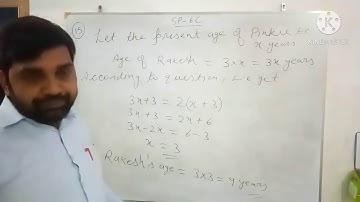 GP-6C
(15) Let the present age of Pinkie be
x years
Age of Rakesh = 3×x = 3x years
According to question, we get
3x+3 = 2(x+3)
3x+3 = 2x+6
3x-2x = 6-3
x = 3
Rakesh's age = 3×3 = 9 years
KINEMASTER